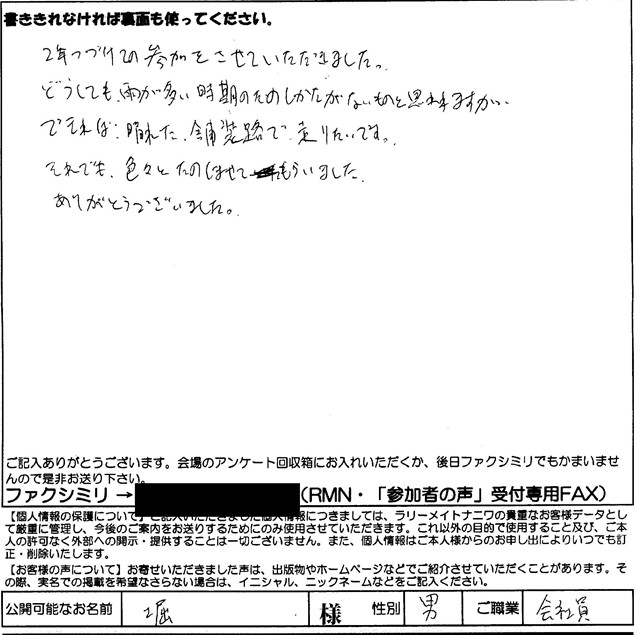 書ききれなければ裏面も使ってください。
2年つづけての参加をさせていただきました。
どうしても、雨が多い時期のためしかたがないものと思われますが、
できれば、晴れた、舗装路で、走りたいです。
それでも、色々とたのしませてもらいました。
ありがとうございました。
ご記入ありがとうございます。会場のアンケート回収箱にお入れいただくか、後日ファクシミリでもかまいませ
んので是非お送り下さい。
ファクシミリ → (RMN・「参加者の声」受付専用FAX)
【個人情報の保護について】ご記入いただきました個人情報につきましては、ラリーメイトナニワの貴重なお客様データとし
て厳重に管理し、今後のご案内をお送りするためにのみ使用させていただきます。これ以外の目的で使用すること及び、ご本
人の許可なく外部への開示・提供することは一切ございません。また、個人情報はご本人様からのお申し出によりいつでも訂
正・削除いたします。
【お客様の声について】お寄せいただきました声は、出版物やホームページなどでご紹介させていただくことがあります。そ
の際、実名での掲載を希望なさらない場合は、イニシャル、ニックネームなどをご記入ください。
公開可能なお名前 堀 様 性別 男 ご職業 会社員